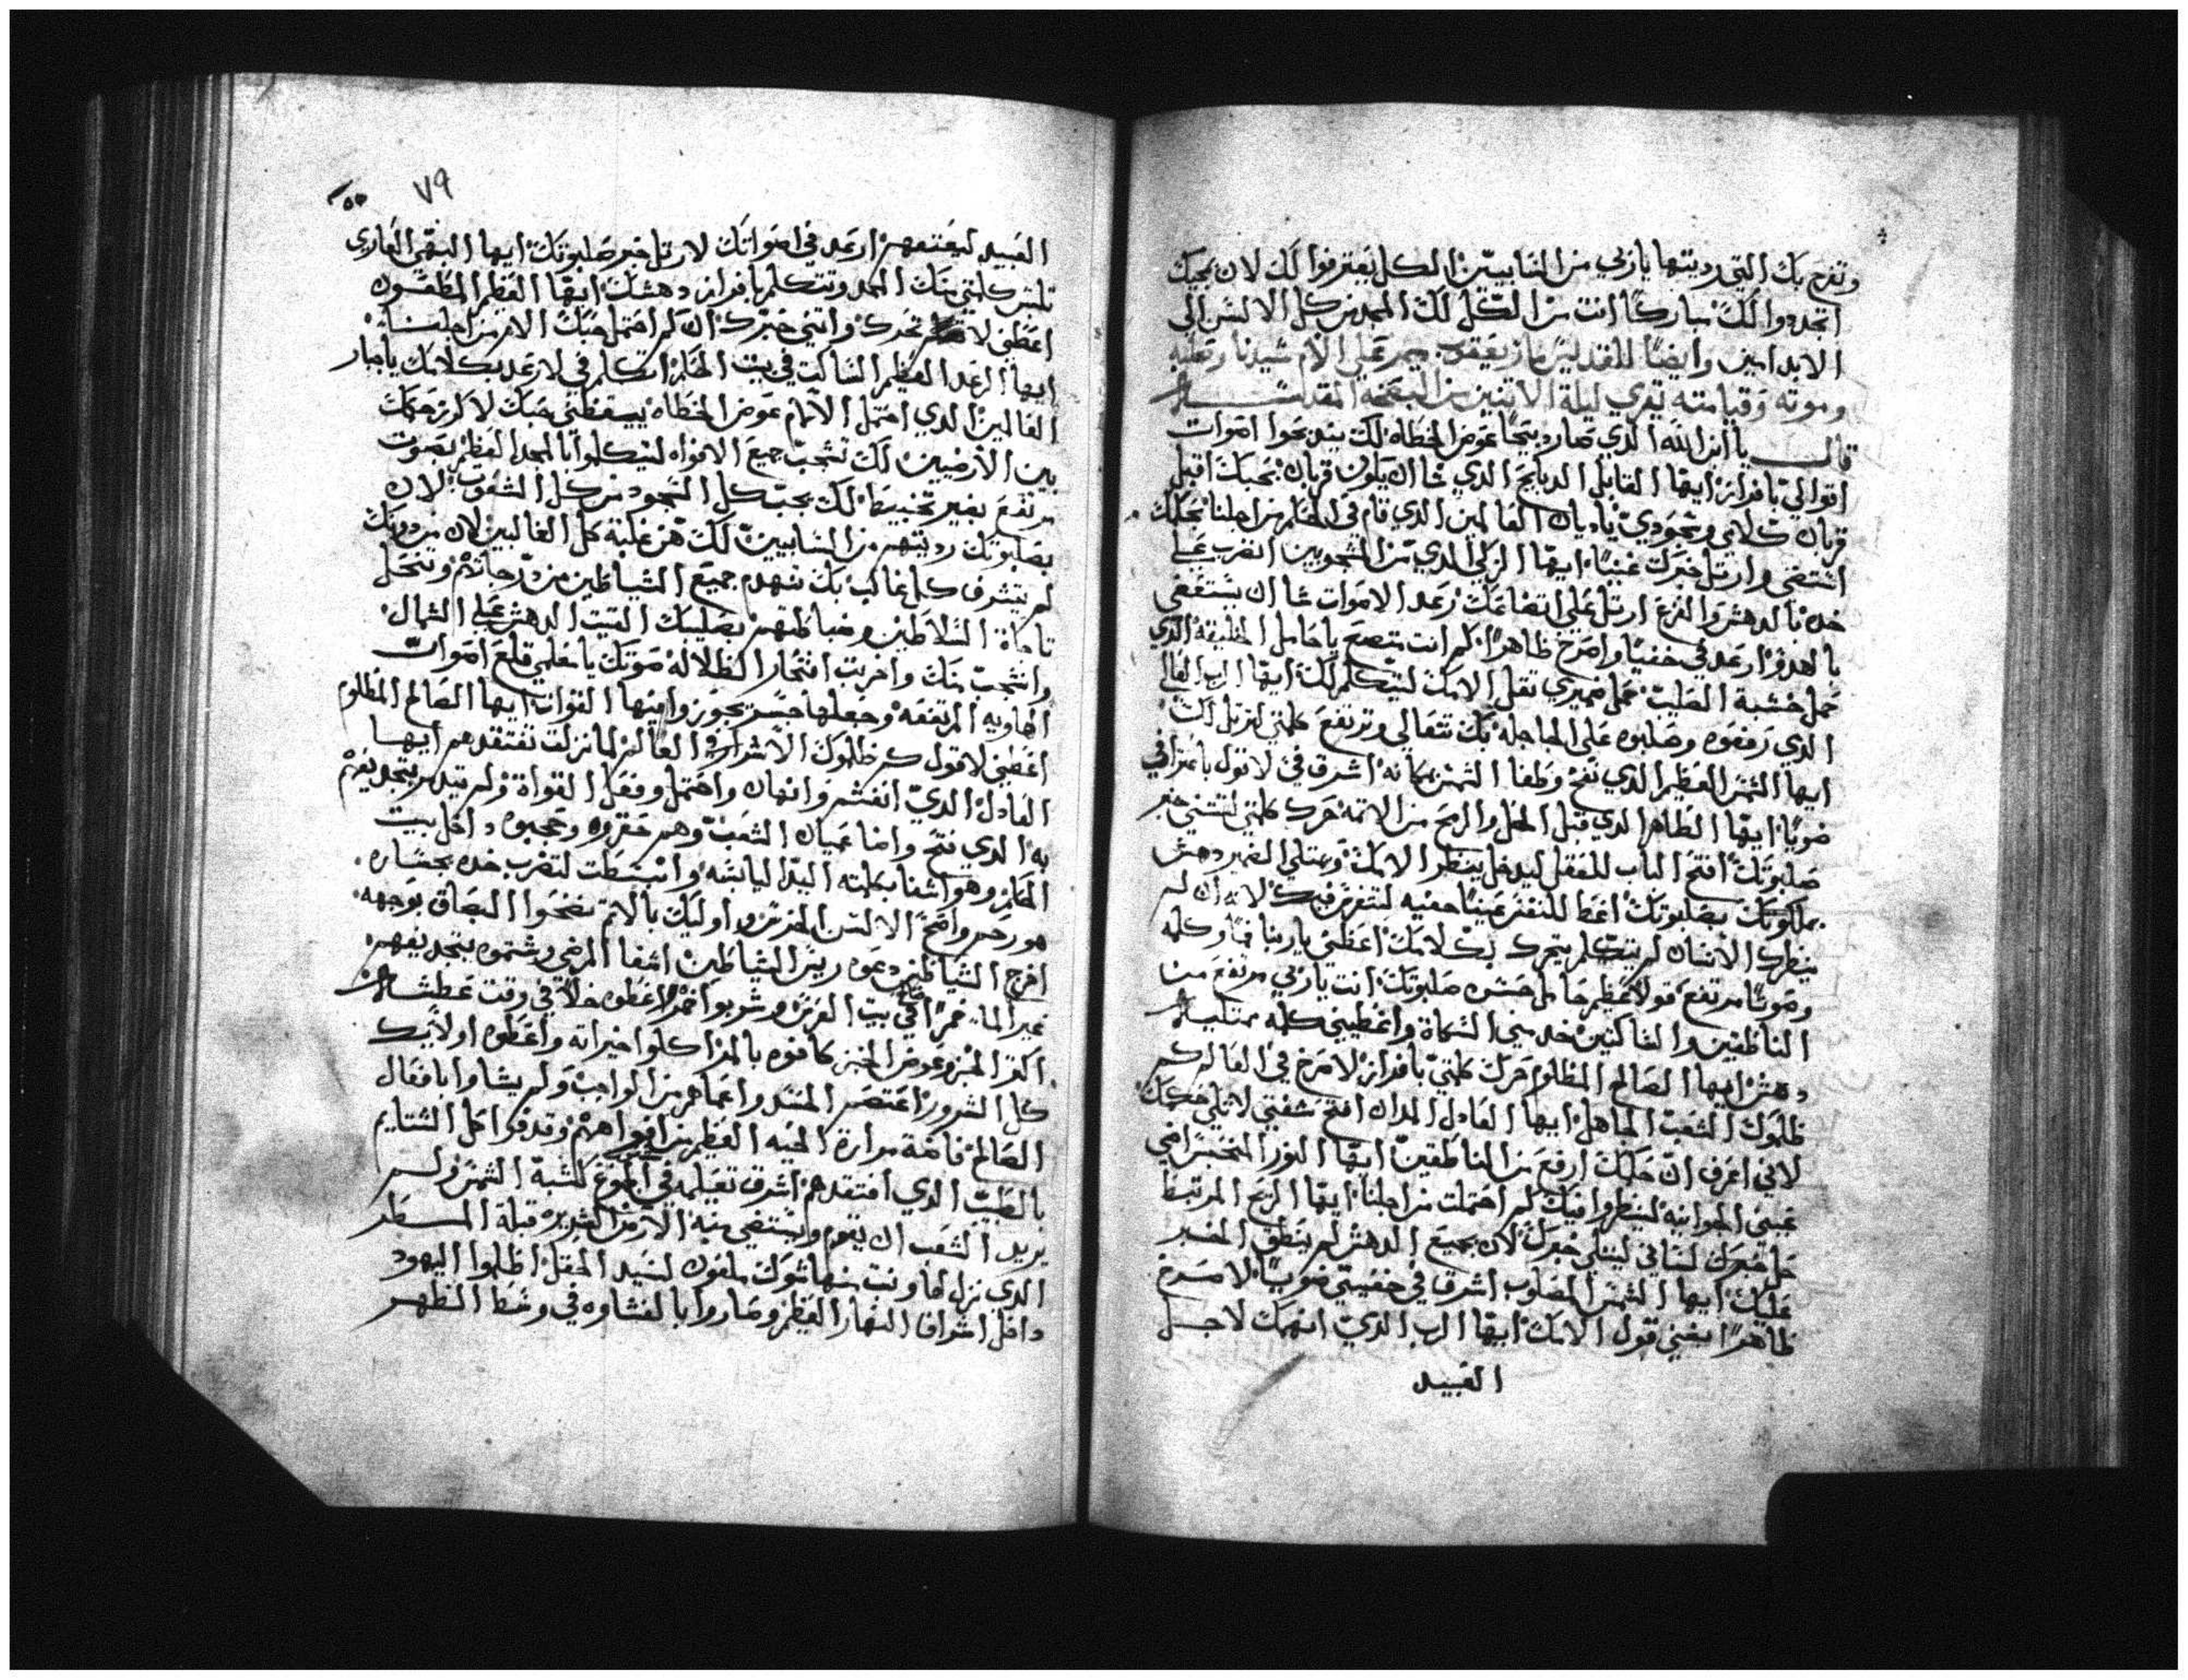 وتفرح بك التي رديتها يا ربي من السابيين الكل يعترفوا لك لان بحبك
اتجددوا لك مباركًا انت من الكل لك المجد من كل الالسن الي
الابد امين وايضًا للقديس مار يعقوب ميمر علي الام سيدنا وصلبه
وموته وقيامته يقري ليلة الاتنين من البصخه المقدسه
قال يا ابن الله الذي صار ذبيحًا عوض الخطاه لك يتحركوا اصوات
اقوالي بافراز ايها القابل الدبايح الذي شا ان يكون قربان بحبك اقبل
قربان كلامي وسجودي يا ديان العالمين الذي قام في الحكم من اجلنا بحكمك
استضي وارتل خبرك غنيًا ايها الزكي الذي من المسجونين انضرب علي
خده بالدهش والفزع ارتل علي اتضاعك رعد الاصوات شا ان يستقصي
بالهدو ارعد في خفيًا واصرخ ظاهرًا كم انت متضع يا حامل الخليقه الذي
حمل خشبة الصليب حمل ضميري ثقل الامك ليتكلم لك ايها الرب العالي
الذي رفعوه وصلبوه علي الجاجله بك تتعالي وترتفع كلمتي لترتل لك
ايها الشمس العظيم الذي نفخ وطفا الشمس مكانه اشرق في لاقول بامتزاقي
ضويًا ايها الطاهر الذي قبل الخل والرمح من الاثمه حرك كلمتي لتستني خبر
صلبوتك افتح الباب للعقل ليدخل ينظر الامك ويمتلي الضمير دهش
بملكوتك بصلبوتك اعطا للنفس عينًا حفيه لتتفرس فيك لانه ان لم
ينظرك الانسان لم يتكلم يتحرك بكلامك اعطيني يا ربنا فمًا وكلمه
وصوتًا مرتفع قولًا عظيم حامل حسن صلبوتك انت يا ربي مرتفع من
الناطقين والساكتين خد مني السكاة واعطيني كلمه ممتليه
دهش ايها الصالح المظلوم حرك كلمتي بافراز لاصرخ في العالم كم
ظلموك الشعب الجاهل ايها العادل المدان افتح شفتي لاتلي حكمك
لاني اعرف ان حكمك ارفع من الناطقين ايها النور المحتبس اضي
عيني الجوانيه لينظروا فيك كم احتملت من اجلنا ايها الريح المرتبط
حل خبرك لساني ليتلي خبرك لان بجميع الدهش لم ينطق الخبر
عليك ايها الشمس المصلوب اشرق في خفيتي ضوييًا لاصرخ
ظاهرًا بغني قول الامك ايها الرب الذي انهمك لاجل
العبيد
٧٩
العبيد ليعتقهم ارعد في اصواتك لارتل خبر صلبوتك ايها البهي العاري
تلبس كلمتي منك المجد وتتكلم بافراز دهشك ايها العظيم المطقسون
اعطني لا تحرك واتني خبرك ان كم احتمل حبك الالم من اجلنا
ايها الرعد العظيم الساكت في بيت الحكم اتكلم في لارعد بكلامك يا جبار
العالمين الذي احتمل الالام عوض الخطاه ييقظني حبك لاكرز حكمك
بين الارضيين لك تسجب جميع الافواه ليتكلموا بالمجد العظيم بصوت
مرتفع بغير تخبيط لك يجب كل السجود من كل الشعوب لان
بصلبوتك رديتهم من السابيين لك هي غلبة كل الغالبين لان من دونك
لم يتشرف كل غالب بك تنهدم جميع الشياطين من درجاتهم وتنحل
تاجاة السلاطين وضباطتهم بصليبك القيت الدهش علي الشمال
وانتجبت منك واخربت افتخار الظلاله صوتك يا معلمي قلع اصوات
الهاويه المرتفعه وجعلها جسر يجوزوا فيها القوات ايها الصالح المظلوم
اعطني لاقول كم ظلموك الاشرار في العالم لما نزلت تفتقدهم ايها
العادل الذي انفسد وانهان واحتمل وفعل القواة ولم يتبدلهم يتجد يفهم
به الذي فتح واضا عميان الشعب وهم حقروه وعجبوه داخل بيت
الحكم وهو اشفا بكلمته اليد اليابسه وانبسطت لتضرب خده بجساره
هو رحم وافصح الالسن الخرس واوليك بالاثم نضحوا البصاق بوجهه
اخرج الشياطين دعوه ريس الشياطين اشفا المرضي وشتموه بتجديفهم
غير الما خمرًا في بيت العرس وشربوا خمر اعطوه خلًا في وقت عطشه
اكتر الخبز وعوض الخبز كافوه بالمر اكلوا خيراته واعطوه اولايك
كل الشرور اغتصبهم الحسد واعماهم من الواجب ولم يشاوا بافعال
الصالح فاضه مرارة الحيه العظيم من افواههم وقدفوا كل الشتايم
بالطبيب الذي افتقدهم اشرق تعليمه في الجوع كشبه الشمس ولم
يريد الشعب ان يقوم ويستضي منه الارض الشريره قبلة المطر
الذي نزل لها ونبت منها شوك ملعون لسيد الحقل اظلموا اليهود
داخل اشراق النهار العظيم وصاروا بالغشاوه في وسط الظهر